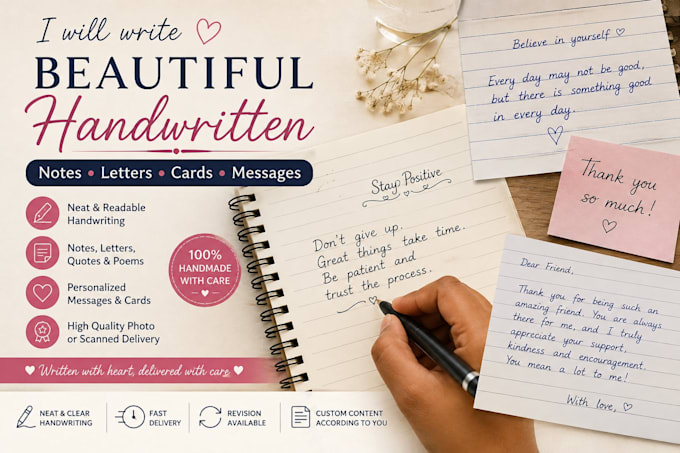 I will write ♡
BEAUTIFUL
Handwritten
Notes • Letters • Cards • Messages
Neat & Readable
Handwriting
Notes, Letters,
Quotes & Poems
Personalized
Messages & Cards
High Quality Photo
or Scanned Delivery
100%
HANDMADE
WITH CARE
Written with heart, delivered with care.
NEAT & CLEAR
HANDWRITING
FAST
DELIVERY
REVISION
AVAILABLE
CUSTOM CONTENT
ACCORDING TO YOU
Stay Positive
Don't give up.
Great things take time.
Be patient and
trust the process.
Believe in yourself ♡
Every day may not be good,
but there is something good
in every day.
Thank you
so much!
Dear Friend,
Thank you for being such an
amazing friend. You are always
there for me, and I truly
appreciate your support,
kindness and encouragement.
You mean a lot to me!
With love, ♡